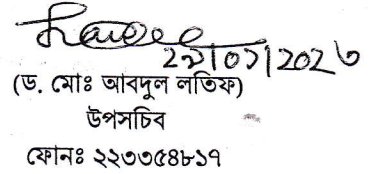 ২৯/০১/2026
(ড. মোঃ আবদুল লতিফ)
উপসচিব
ফোনঃ ২২৩৩৫৪৮১৭